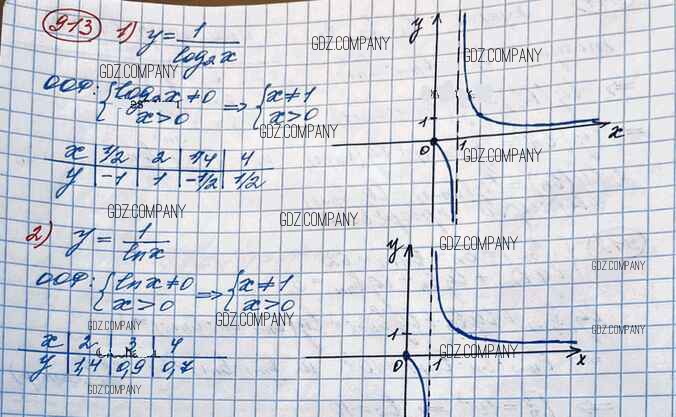 913 1) y = 1/log₂x
ООФ: { log₂x ≠ 0 => { x ≠ 1
x > 0 x > 0
x | 1/2 | 2 | 1/4 | 4
y | -1 | 1 | -1/2 | 1/2
2) y = 1/lnx
ООФ: { lnx ≠ 0 => { x ≠ 1
x > 0 x > 0
x | 2 | 3 | 4
y | 1,4 | 0,9 | 0,7
y
1
0 1 x
y
1
0 1 x
GDZ.COMPANY
GDZ.COMPANY
GDZ.COMPANY
GDZ.COMPANY
GDZ.COMPANY
GDZ.COMPANY
GDZ.COMPANY
GDZ.COMPANY
GDZ.COMPANY
GDZ.COMPANY
GDZ.COMPANY
GDZ.COMPANY
GDZ.COMPANY
GDZ.COMPANY